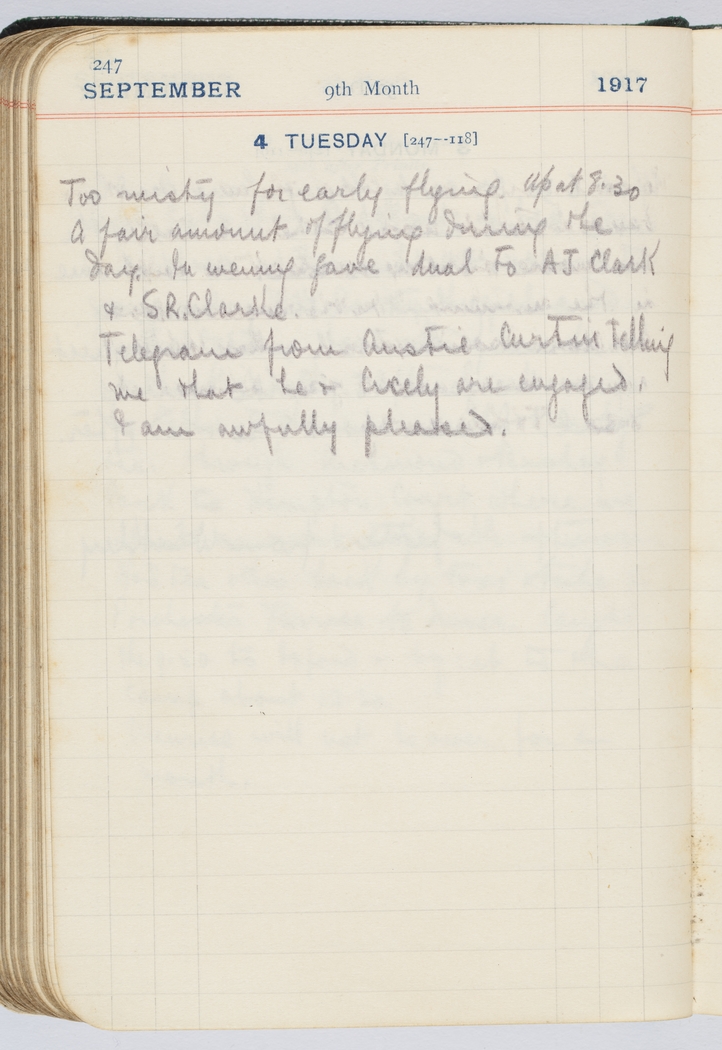 247
SEPTEMBER 9th Month 1917
4 TUESDAY [247--118]
Too misty for early flying. Up at 8.30
A fair amount of flying during the
day. In evening gave dual to AJ Clark
& S.R. Clarke.
Telegram from Austie Curtin telling
me that he & are engaged.
I am awfully pleased.